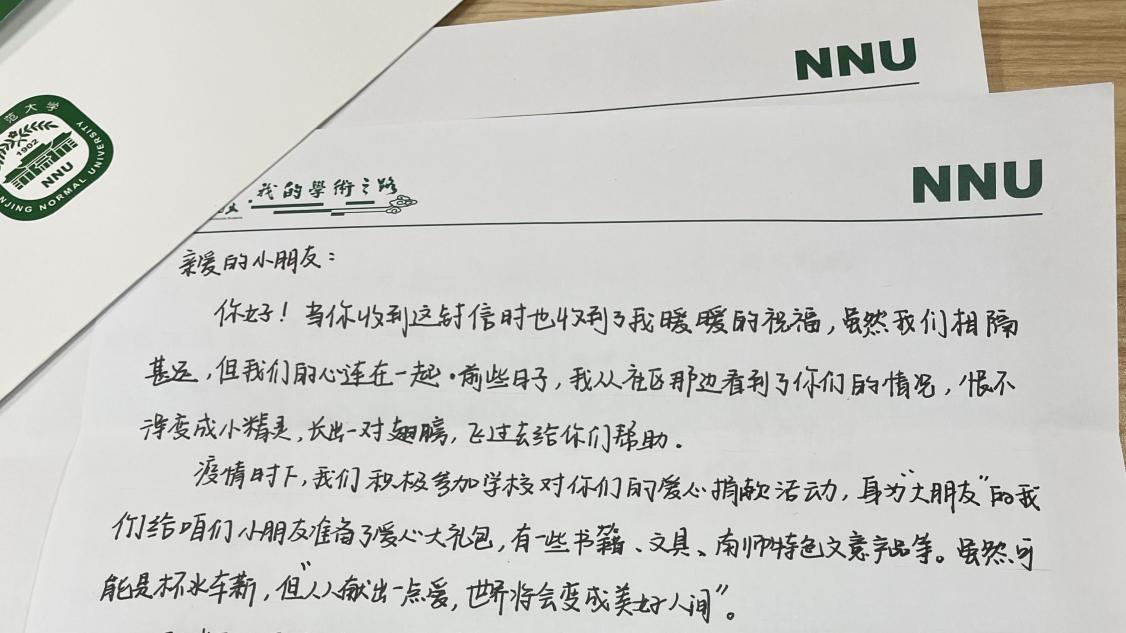 NNU
范大学
1902
NNU
NJING NORMAL UNIVERSITY
我的學術之路
NNU
亲爱的小朋友：
你好！当你收到这封信时也收到了我暖暖的祝福，虽然我们相隔
甚远，但我们的心连在一起。前些日子，我从社区那边看到了你们的情况，恨不
得变成小精灵，长出一对翅膀，飞过去给你们帮助。
疫情时下，我们积极参加学校对你们的爱心捐款活动，身为“大朋友”的我
们给咱们小朋友准备了爱心大礼包，有一些书籍、文具、南师特色文意产品等。虽然可
能是杯水车薪，但“人人献出一点爱，世界将会变成美好人间”。